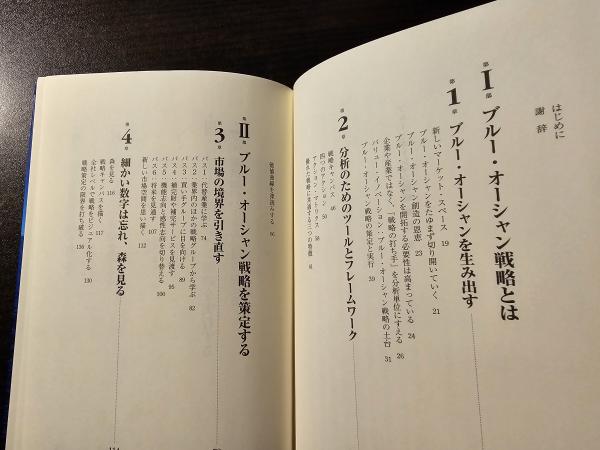 はじめに
謝辞
第Ⅰ部 ブルー・オーシャン戦略とは
第1章 ブルー・オーシャンを生み出す
新しいマーケット・スペース 19
ブルー・オーシャンをたゆまず切り開いていく 21
ブルー・オーシャン創造の恩恵 23
ブルー・オーシャンを開拓する必要性は高まっている 24
企業や産業ではなく、「戦略の打ち手」を分析単位にすえる 26
バリュー・イノベーション：ブルー・オーシャン戦略の土台 31
ブルー・オーシャン戦略の策定と実行 39
第2章 分析のためのツールとフレームワーク
戦略キャンバス 46
四つのアクション 50
アクション・マトリクス 58
優れた戦略に共通する三つの特徴 61
価値曲線を深読みする 66
第Ⅱ部 ブルー・オーシャン戦略を策定する
第3章 市場の境界を引き直す
パス1：代替産業に学ぶ 74
パス2：業界内のほかの戦略グループから学ぶ 82
パス3：買い手グループに目を向ける 89
パス4：補完財や補完サービスを見渡す 95
パス5：機能志向と感性志向を切り替える 100
パス6：将来を見通す 107
新しい市場空間を思い描く 112
第4章 細かい数字は忘れ、森を見る
森を見る 116
戦略キャンバスを描く 117
全社レベルで戦略をビジュアル化する 130
戦略策定の限界を打ち破る 136